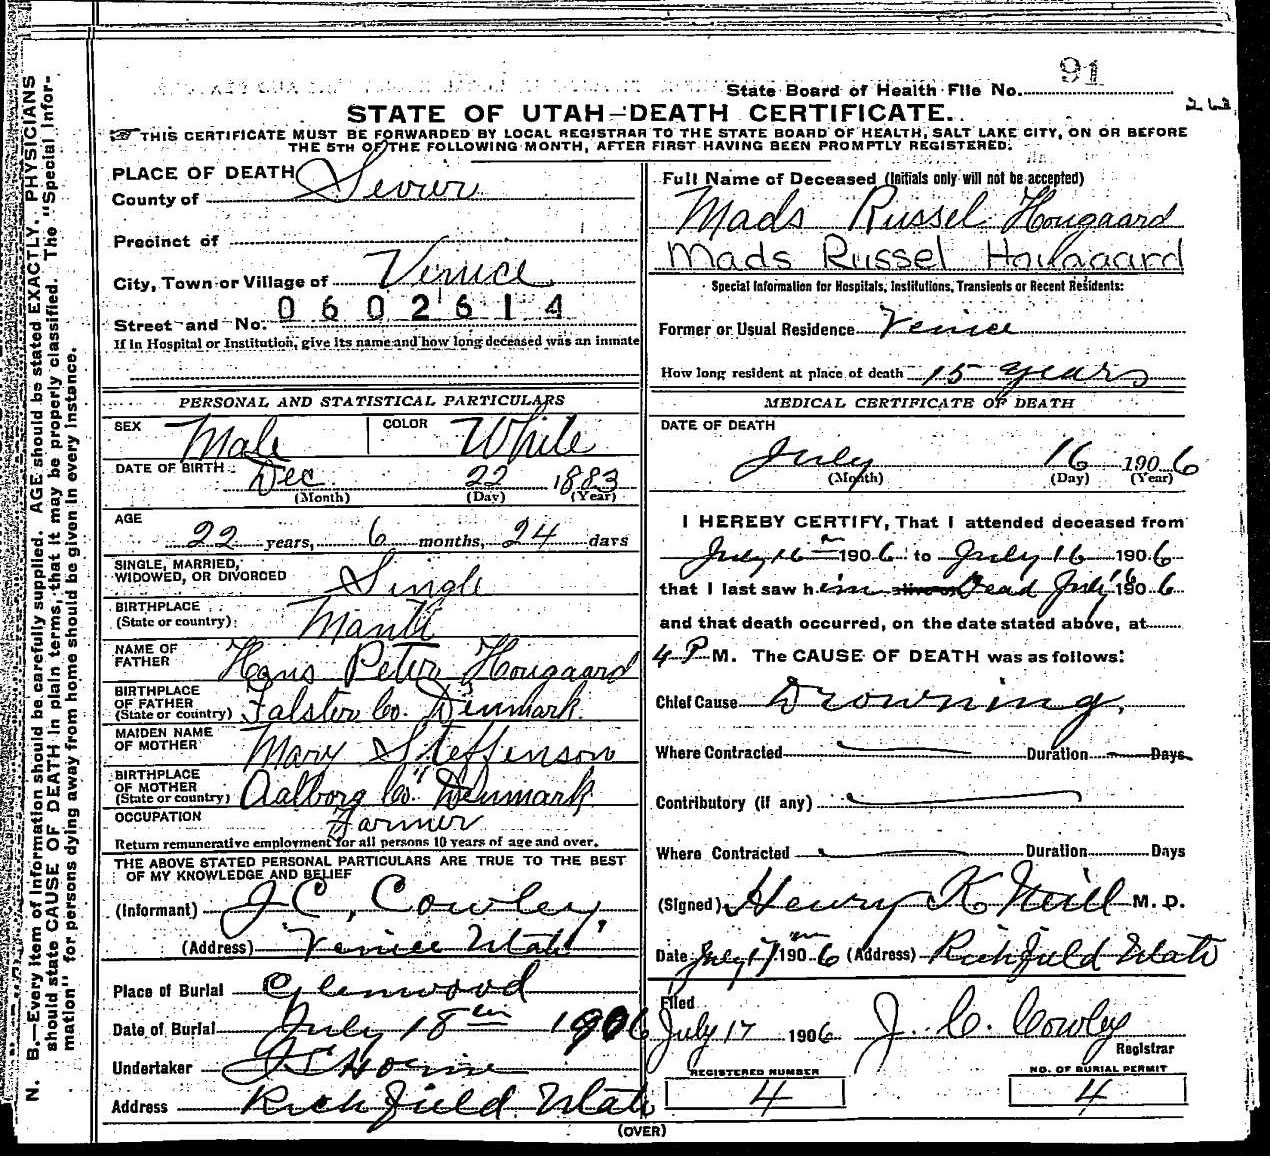 91
State Board of Health File No.
STATE OF UTAH—DEATH CERTIFICATE.
THIS CERTIFICATE MUST BE FORWARDED BY LOCAL REGISTRAR TO THE STATE BOARD OF HEALTH, SALT LAKE CITY, ON OR BEFORE
THE 5TH OF THE FOLLOWING MONTH, AFTER FIRST HAVING BEEN PROMPTLY REGISTERED.
N. B.—Every item of information should be carefully supplied. AGE should be stated EXACTLY. PHYSICIANS
should state CAUSE OF DEATH in plain terms, that it may be properly classified. The "Special Infor-
mation" for persons dying away from home should be given in every instance.
PLACE OF DEATH
County of Sevier
Precinct of
City, Town or Village of Venice
0602614
Street and No.
If in Hospital or Institution, give its name and how long deceased was an inmate
PERSONAL AND STATISTICAL PARTICULARS
SEX Male COLOR White
DATE OF BIRTH Dec 22 1883
(Month) (Day) (Year)
AGE
22 years, 6 months, 24 days
SINGLE, MARRIED,
WIDOWED, OR DIVORCED Single
BIRTHPLACE
(State or country) Manti
NAME OF
FATHER Hans Peter Hougaard
BIRTHPLACE
OF FATHER
(State or country) Falster Co. Denmark.
MAIDEN NAME
OF MOTHER Mary Steffenson
BIRTHPLACE
OF MOTHER
(State or country) Aalborg Co. Denmark
OCCUPATION Farmer
Return remunerative employment for all persons 10 years of age and over.
THE ABOVE STATED PERSONAL PARTICULARS ARE TRUE TO THE BEST
OF MY KNOWLEDGE AND BELIEF
(Informant) J C, Cowley
(Address) Venice Utah
Place of Burial Glenwood
Date of Burial July 18th 1906
Undertaker Horne
Address Richfield Utah
Full Name of Deceased (Initials only will not be accepted)
Mads Russel Hougaard
Mads Russel Hougaard
Special Information for Hospitals, Institutions, Transients or Recent Residents:
Former or Usual Residence Venice
How long resident at place of death 15 years
MEDICAL CERTIFICATE OF DEATH
DATE OF DEATH
July 16 1906
(Month) (Day) (Year)
I HEREBY CERTIFY, That I attended deceased from
July 16th 1906 to July 16 1906
that I last saw him alive on Dead July 16 1906
and that death occurred, on the date stated above, at
4 P M. The CAUSE OF DEATH was as follows:
Chief Cause Drowning.
Where Contracted Duration Days
Contributory (if any)
Where Contracted Duration Days
(Signed) Henry K Neill M. D.
Date July 17th 1906 (Address) Richfield Utah
Filed
July 17 1906 J. C. Cowley
Registrar
REGISTERED NUMBER
4
NO. OF BURIAL PERMIT
4
(OVER)